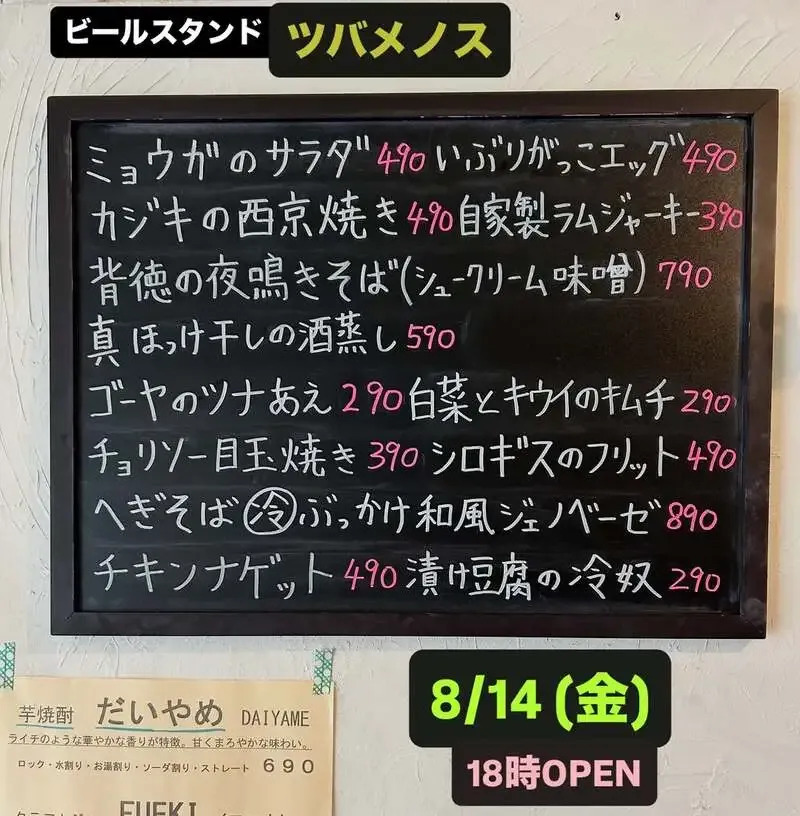 ビールスタンド ツバメノス
ミョウガのサラダ 490 いぶりがっこエッグ 490
カジキの西京焼き 490 自家製ラムジャーキー 390
背徳の夜鳴きそば(シュークリーム味噌) 790
真ほっけ干しの酒蒸し 590
ゴーヤのツナあえ 290 白菜とキウイのキムチ 290
チョリソー目玉焼き 390 シロギスのフリット 490
へぎそば ㊥ぶっかけ和風ジェノベーゼ 890
チキンナゲット 490 漬け豆腐の冷奴 290
8/14 (金)
18時OPEN
芋焼酎 だいやめ DAIYAME
ライチのような華やかな香りが特徴。甘くまろやかな味わい。
ロック・水割り・お湯割り・ソーダ割り・ストレート 690